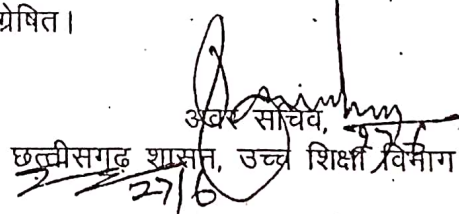 प्रेषित।
अवर सचिव,
छत्तीसगढ़ शासन, उच्च शिक्षा विभाग
27/6